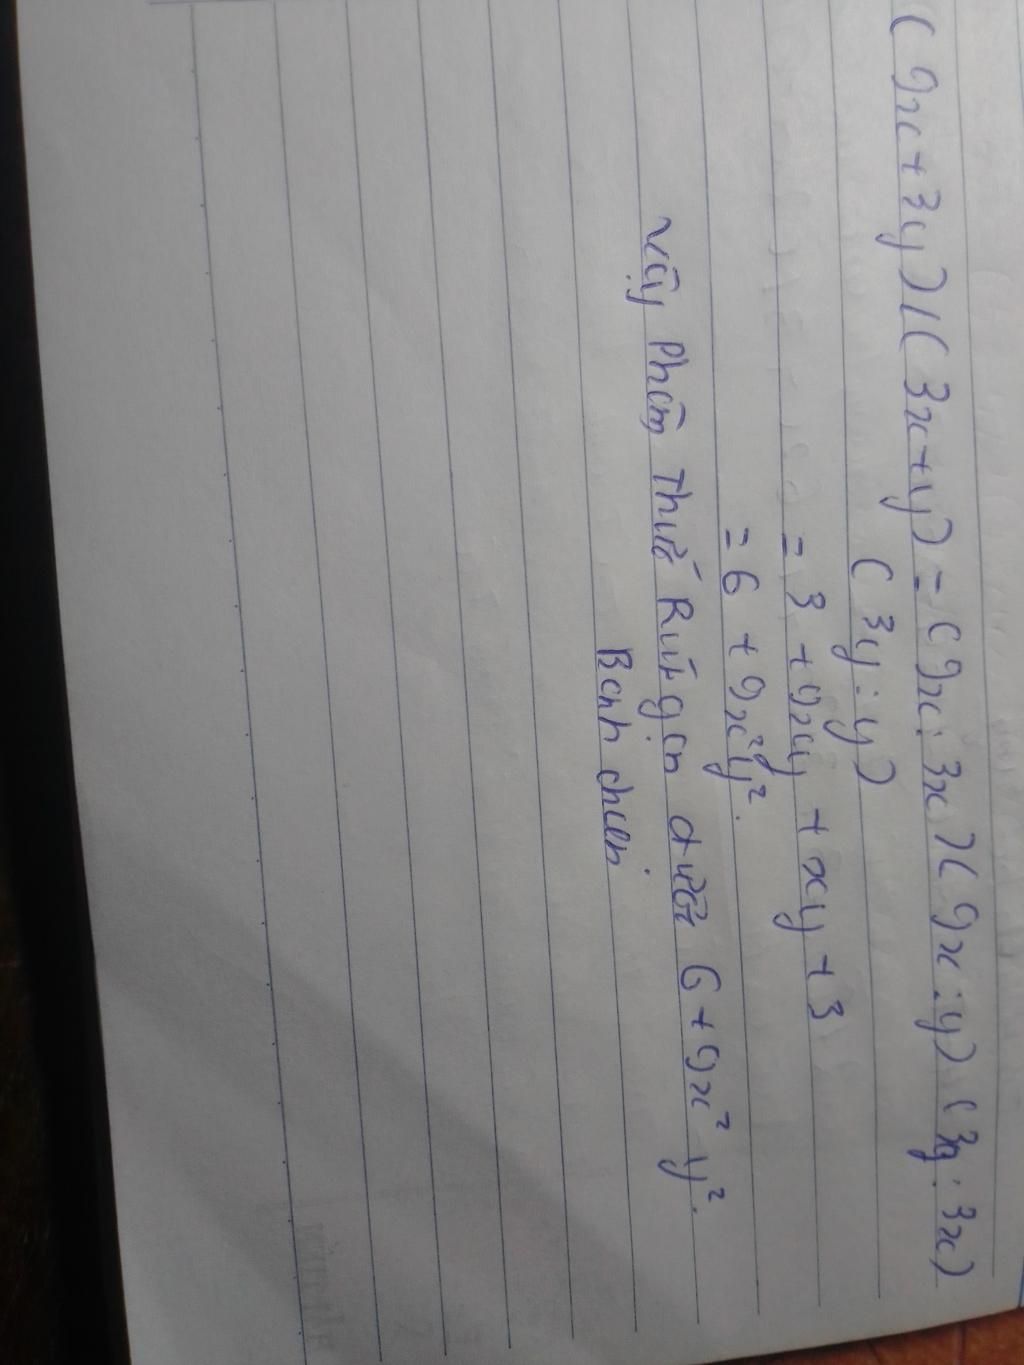 (9x+3y)/(3x+y) = (9x:3x)(9x:y)(3y:3x)
(3y:y)
= 3 + 9xy + xy + 3
= 6 + 9x²y².
vậy Phân Thức Rút gọn được 6+9x²y².